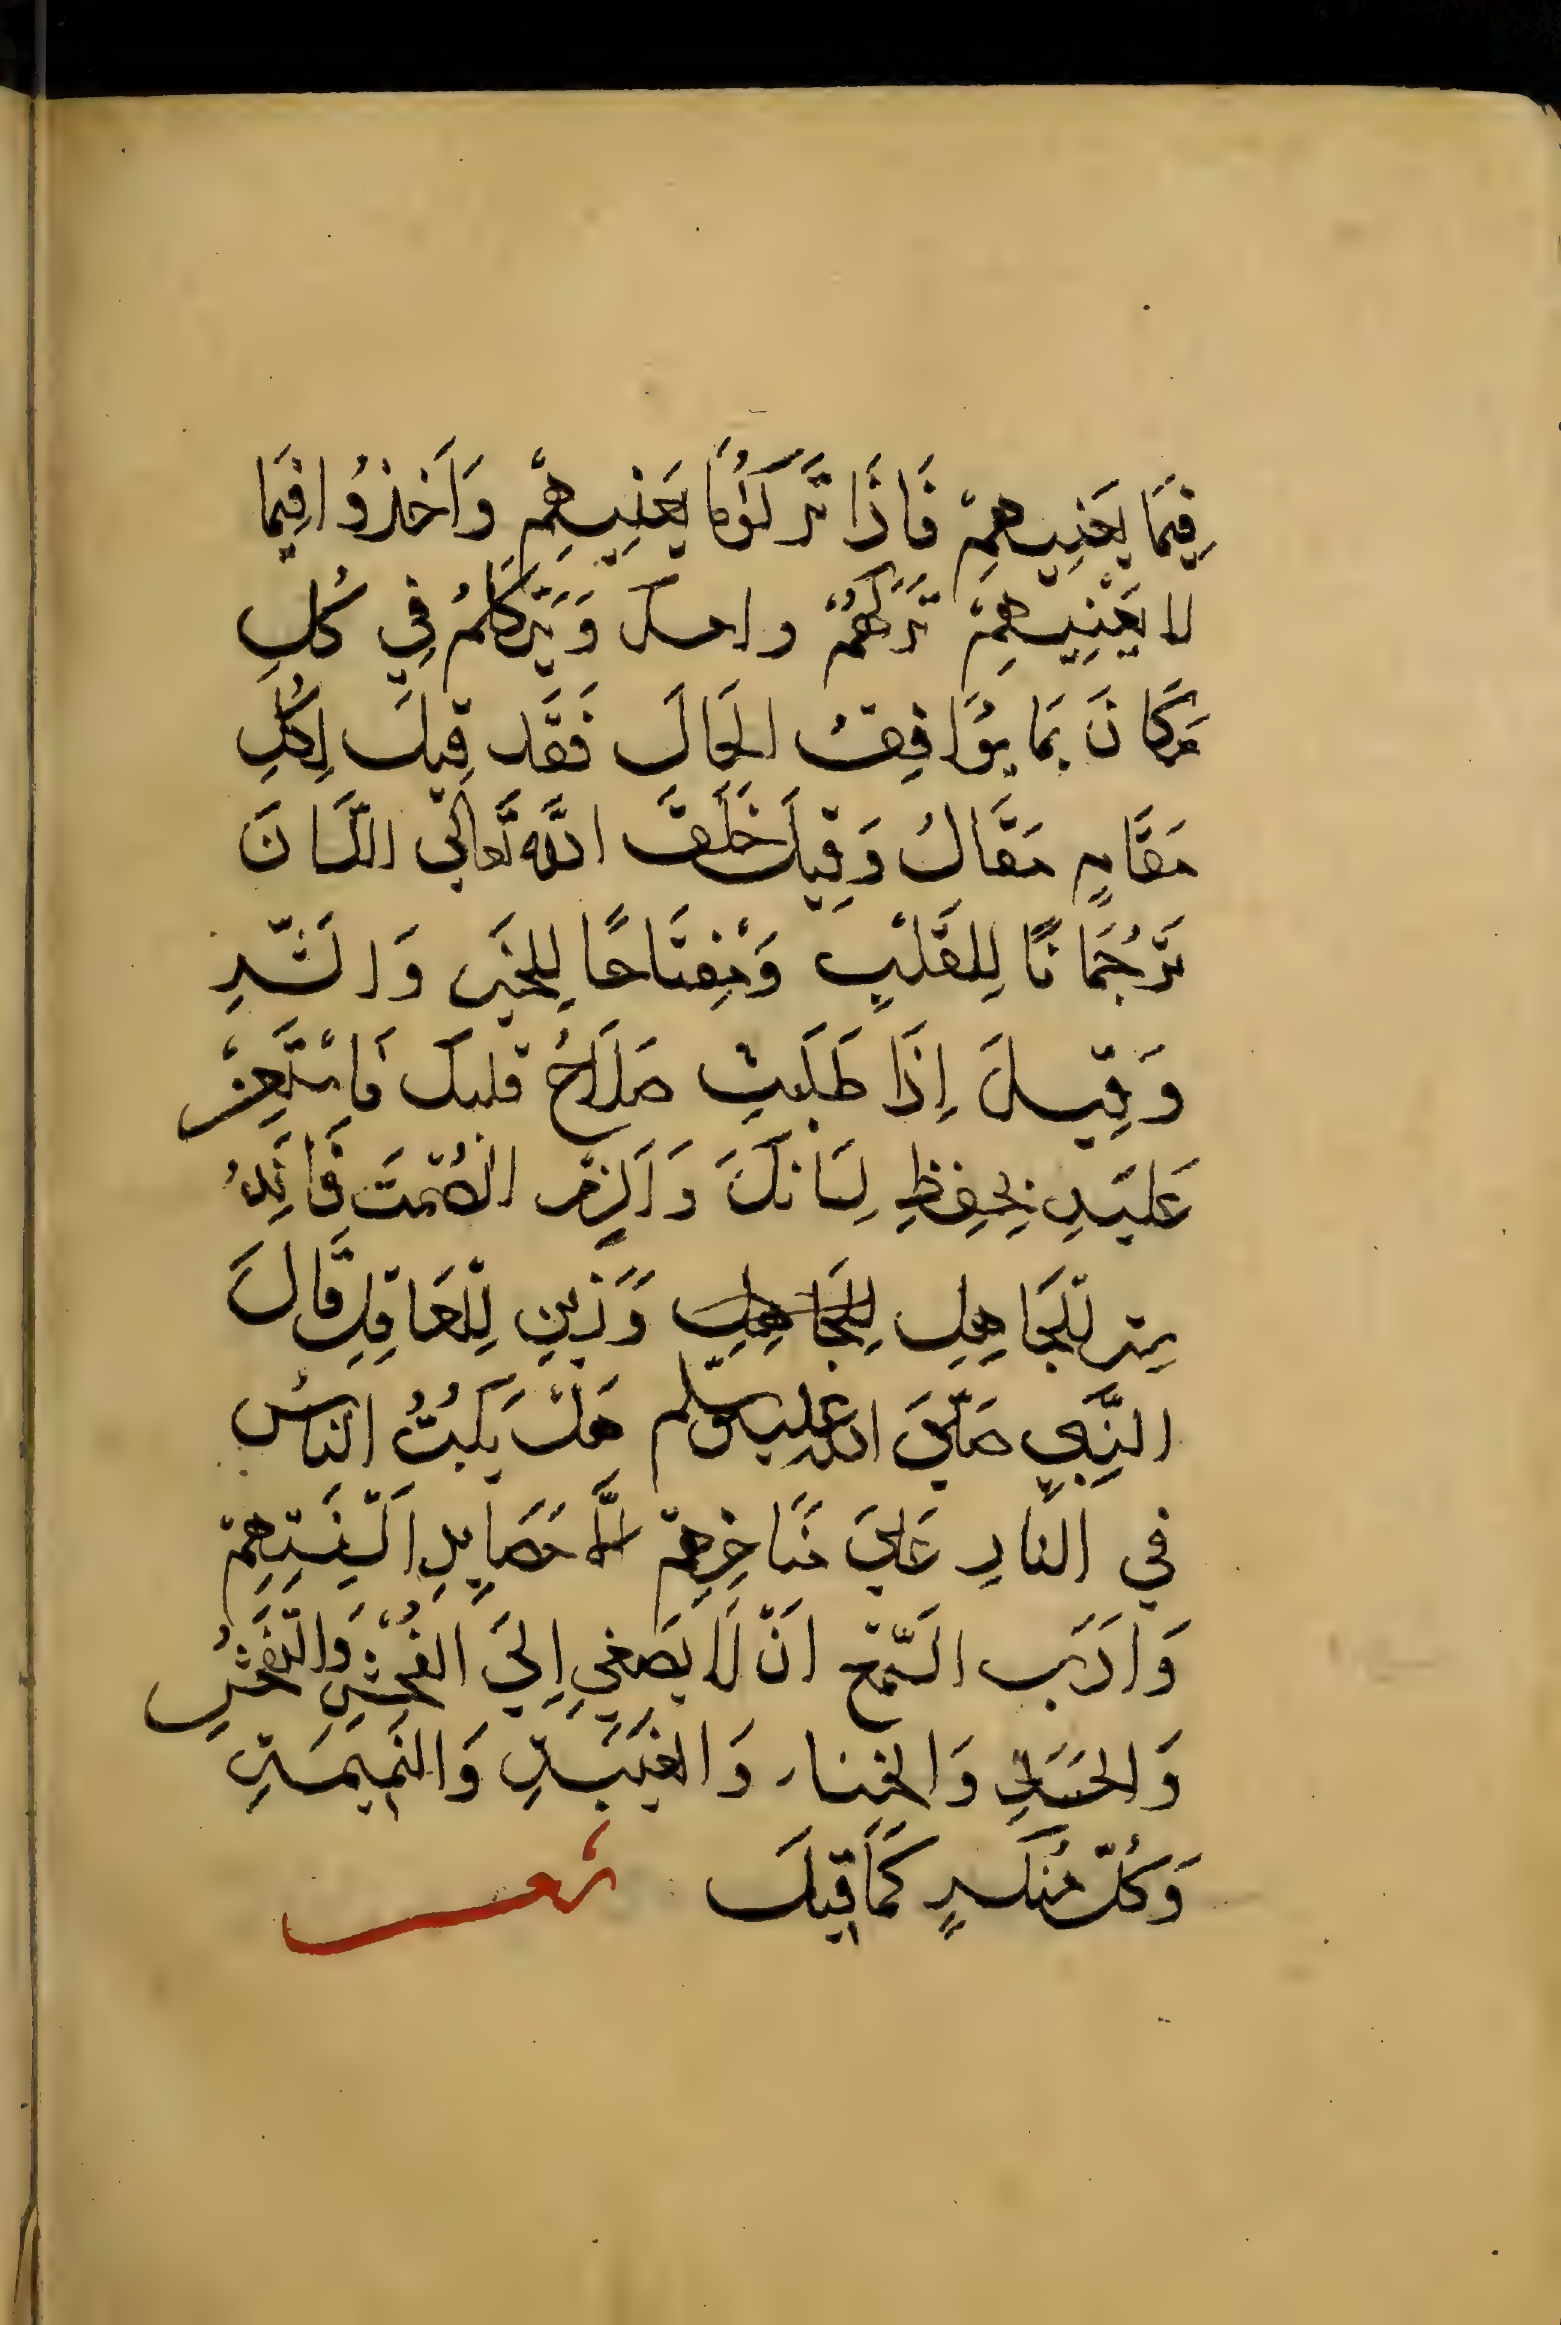 فِيمَا يَعْنِيهِمْ فَاذَا تَرَكُوا مَا يَعْنِيهِمْ وَاَخَذُوا فِيمَا
لا يَعْنِيهِمْ تَرَكَهُمْ وامسك وَيَتَكَلَمُ فِي كُلِ
مَكَانَ بمَا يُوَافِقُ الحَالَ فَقَد قِيلَ لِكُلِ
مَقَامٍ مَقَالُ وَقِيلَ خَلَقَ اللَّه تَعَالَى اللّسَانَ
تَرْجُمَانًا لِلقَلْبِ وَمِفتَاحًا لِلخَيرِ وَالشَّرِ
وَقِيلَ اِذَا طَلَبتَ صَلَاحُ قلبكَ فَاسْتَعِنْ
عَليَهِ بِحِفظِ لِسَانكَ وَالزِمْ الصُمْتَ فَاِنَهُ
سِتر لّلجَاهِلِ لِلجَاهِلِ وَزَينِ لِلْعَاقِلِ قَالَ
النَّبِي صَلّىَ الله عليه وسَلم هَلْ يَكُبُّ الناسُ
في النّارِ عَلىَ مَنَاخِرِهِمْ اِلَّا حَصَايِدِ اَلْسِنَتِهِمْ
وَادَبِ السَّمْعِ اَنْ لَا يَصغِي اِلىَ الفُحْشِ وَالتَفَحُشِ
وَالحَسَدِ وَالخنا وَالغِيَبَةِ وَالنَمِيمَةِ
وَكُلّ مُنكَرٍ كَمَا قِيلَ شعر